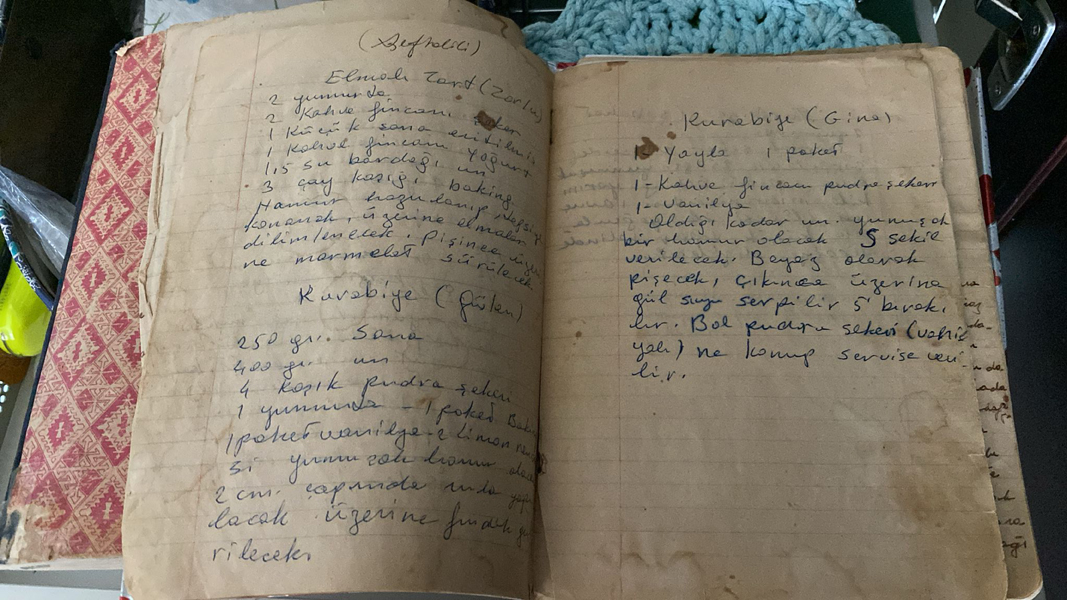 (Şeftalili)
Elmalı Tart (Zorlu)
2 yumurta
2 Kahve fincanı şeker
1 Küçük sana eritilmiş
1 Kahve fincanı yoğurt
1,5 su bardağı un
3 çay kaşığı baking
Hamur hazırlanıp
konacak, üzerine elmalar
dilimlenecek. Pişince
ne marmelat sürülecek
Kurabiye (Gülen)
250 gr. Sana
400 gr. un
4 kaşık pudra şekeri
1 yumurta - 1 paket
1 paket vanilya - 2 limon
si yumuşak hamur
2 cm. çapında
lacak üzerine fındık
rilecek.
Kurabiye (Gina)
1 Yayla 1 paket
1 - Kahve fincanı pudra şekeri
1 - Vanilya
Aldığı kadar un. yumuşak
bir hamur olacak S şekil
verilecek. Beyaz olarak
pişecek, çıkınca üzerine
gül suyu serpilir 5' bırakı
lır. Bol pudra şekeri
ne konup servise veri
lir.